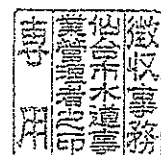 徴収事務
仙台市水道事
業管理者之印
専用